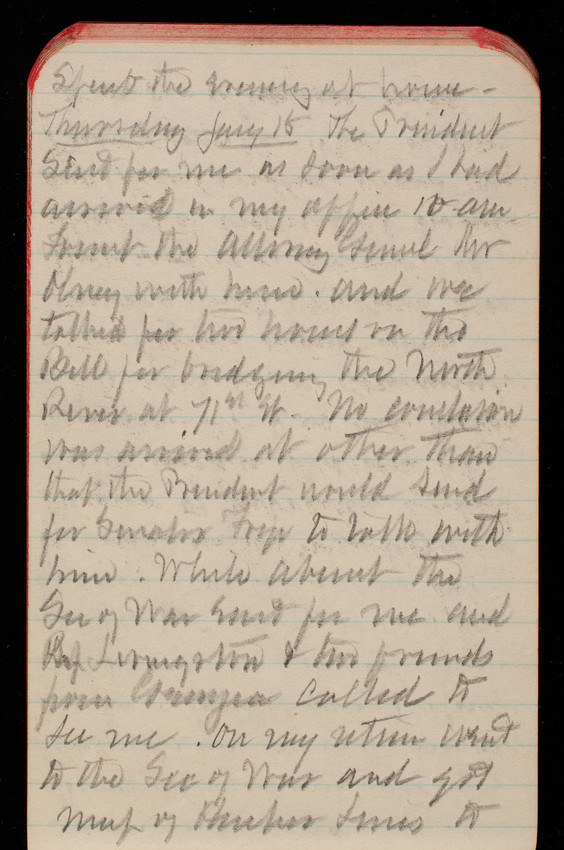 Spent the evening at home -
Thursday Jany 18 The President
Send for me as soon as I had
arrived in my office 10 am
Found the Attorney Genrl Mr
Olney with him. and we
talked for two hours on the
Bill for bridging the North
River at 71st St - No conclusion
was arrived at other than
that the President would send
for Senator to talk with
him. While absent the
Sec of War send for me and
Rep Livingston & two friends
from Georgia called to
see me. On my return went
to the Sec of War and got
map of lines to